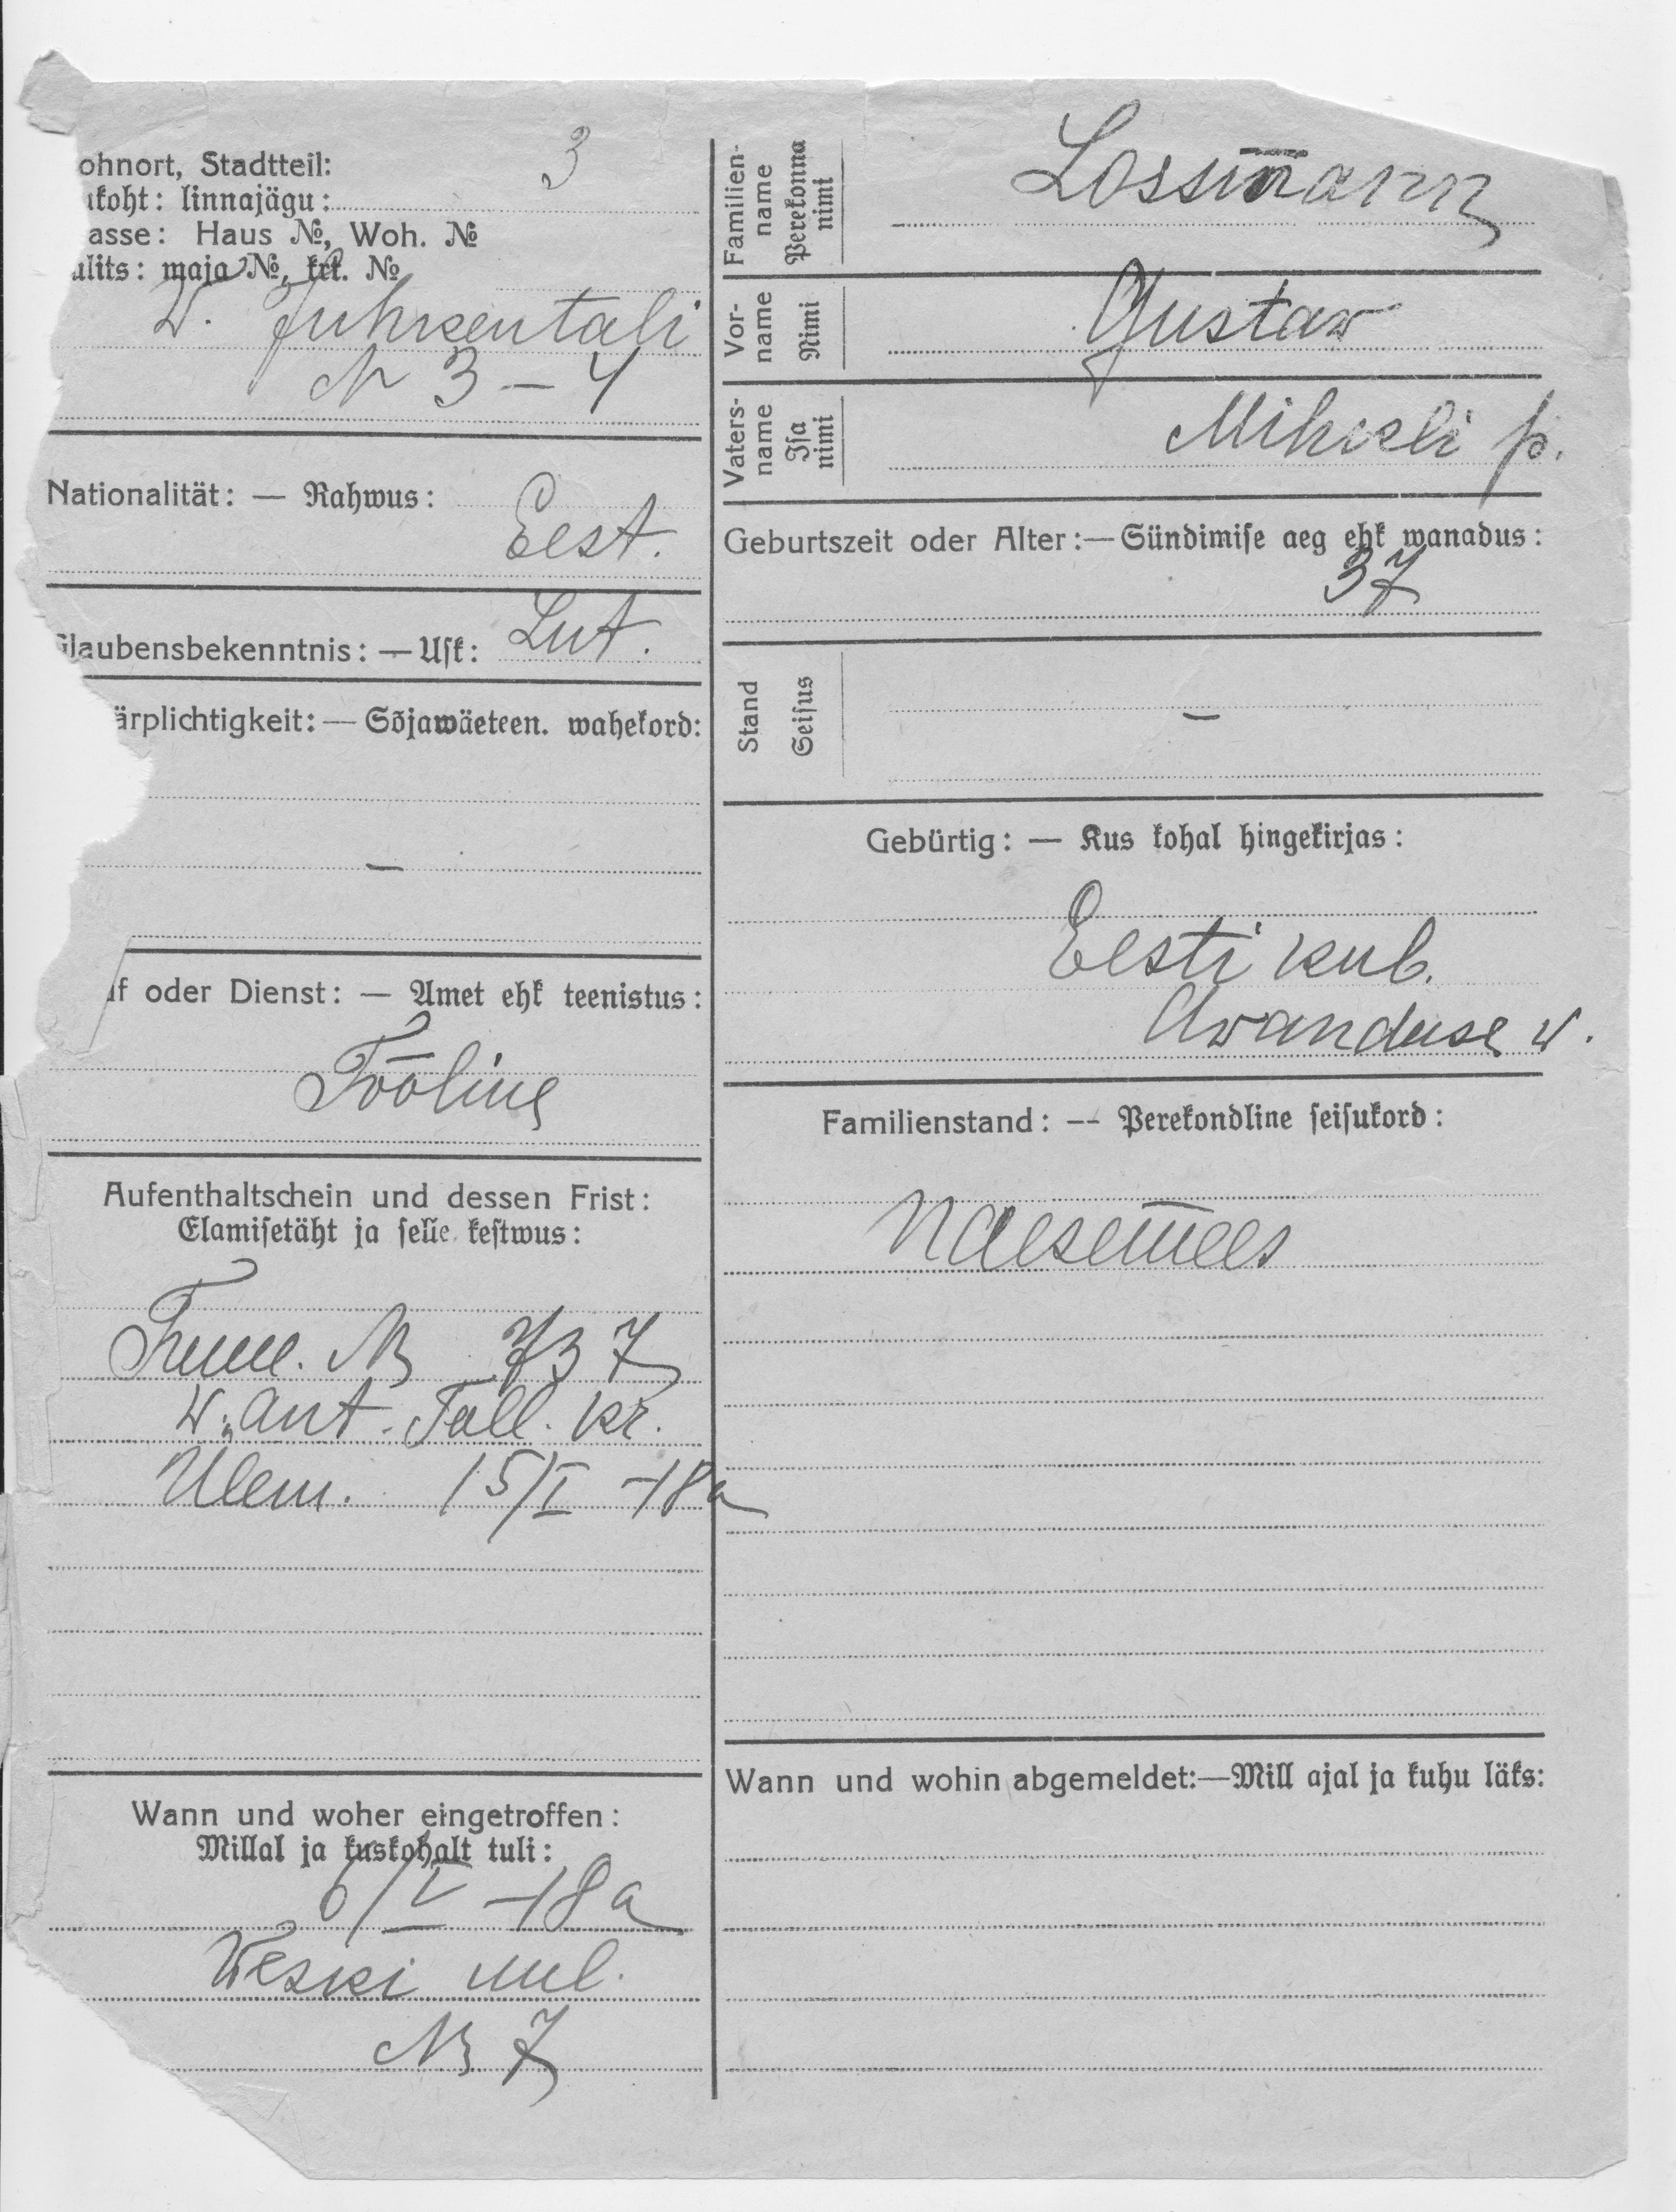 ohnort, Stadtteil: 3
ukoht: linnajägu:
asse: Haus №, Woh. №
ulits: maja №, krt. №
W. Juhkentali
N 3 – 4
Nationalität: — Rahwus:
Eest.
Glaubensbekenntnis: — Usk: Lut.
ärplichtigkeit: — Sõjawäeteen. wahekord:
—
uf oder Dienst: — Amet ehk teenistus:
Tööline
Aufenthaltschein und dessen Frist:
Elamisetäht ja selle kestwus:
№ 737
w. ant. Tall. kr.
Ülem. 15/I -18 a
Wann und woher eingetroffen:
Millal ja kuskohalt tuli:
6/V -18 a
Weski uul.
№ 7
Familien-name
Perekonna nimi
Lossmann
Vor-name
Nimi
Gustaw
Vaters-name
Isa nimi
Mihkeli p.
Geburtszeit oder Alter: — Sündimise aeg ehk wanadus:
37
Stand
Seisus
—
Gebürtig: — Kus kohal hingekirjas:
Eesti kub.
Awanduse w.
Familienstand: -- Perekondline seisukord:
Naesemees
Wann und wohin abgemeldet: — Mill ajal ja kuhu läks: